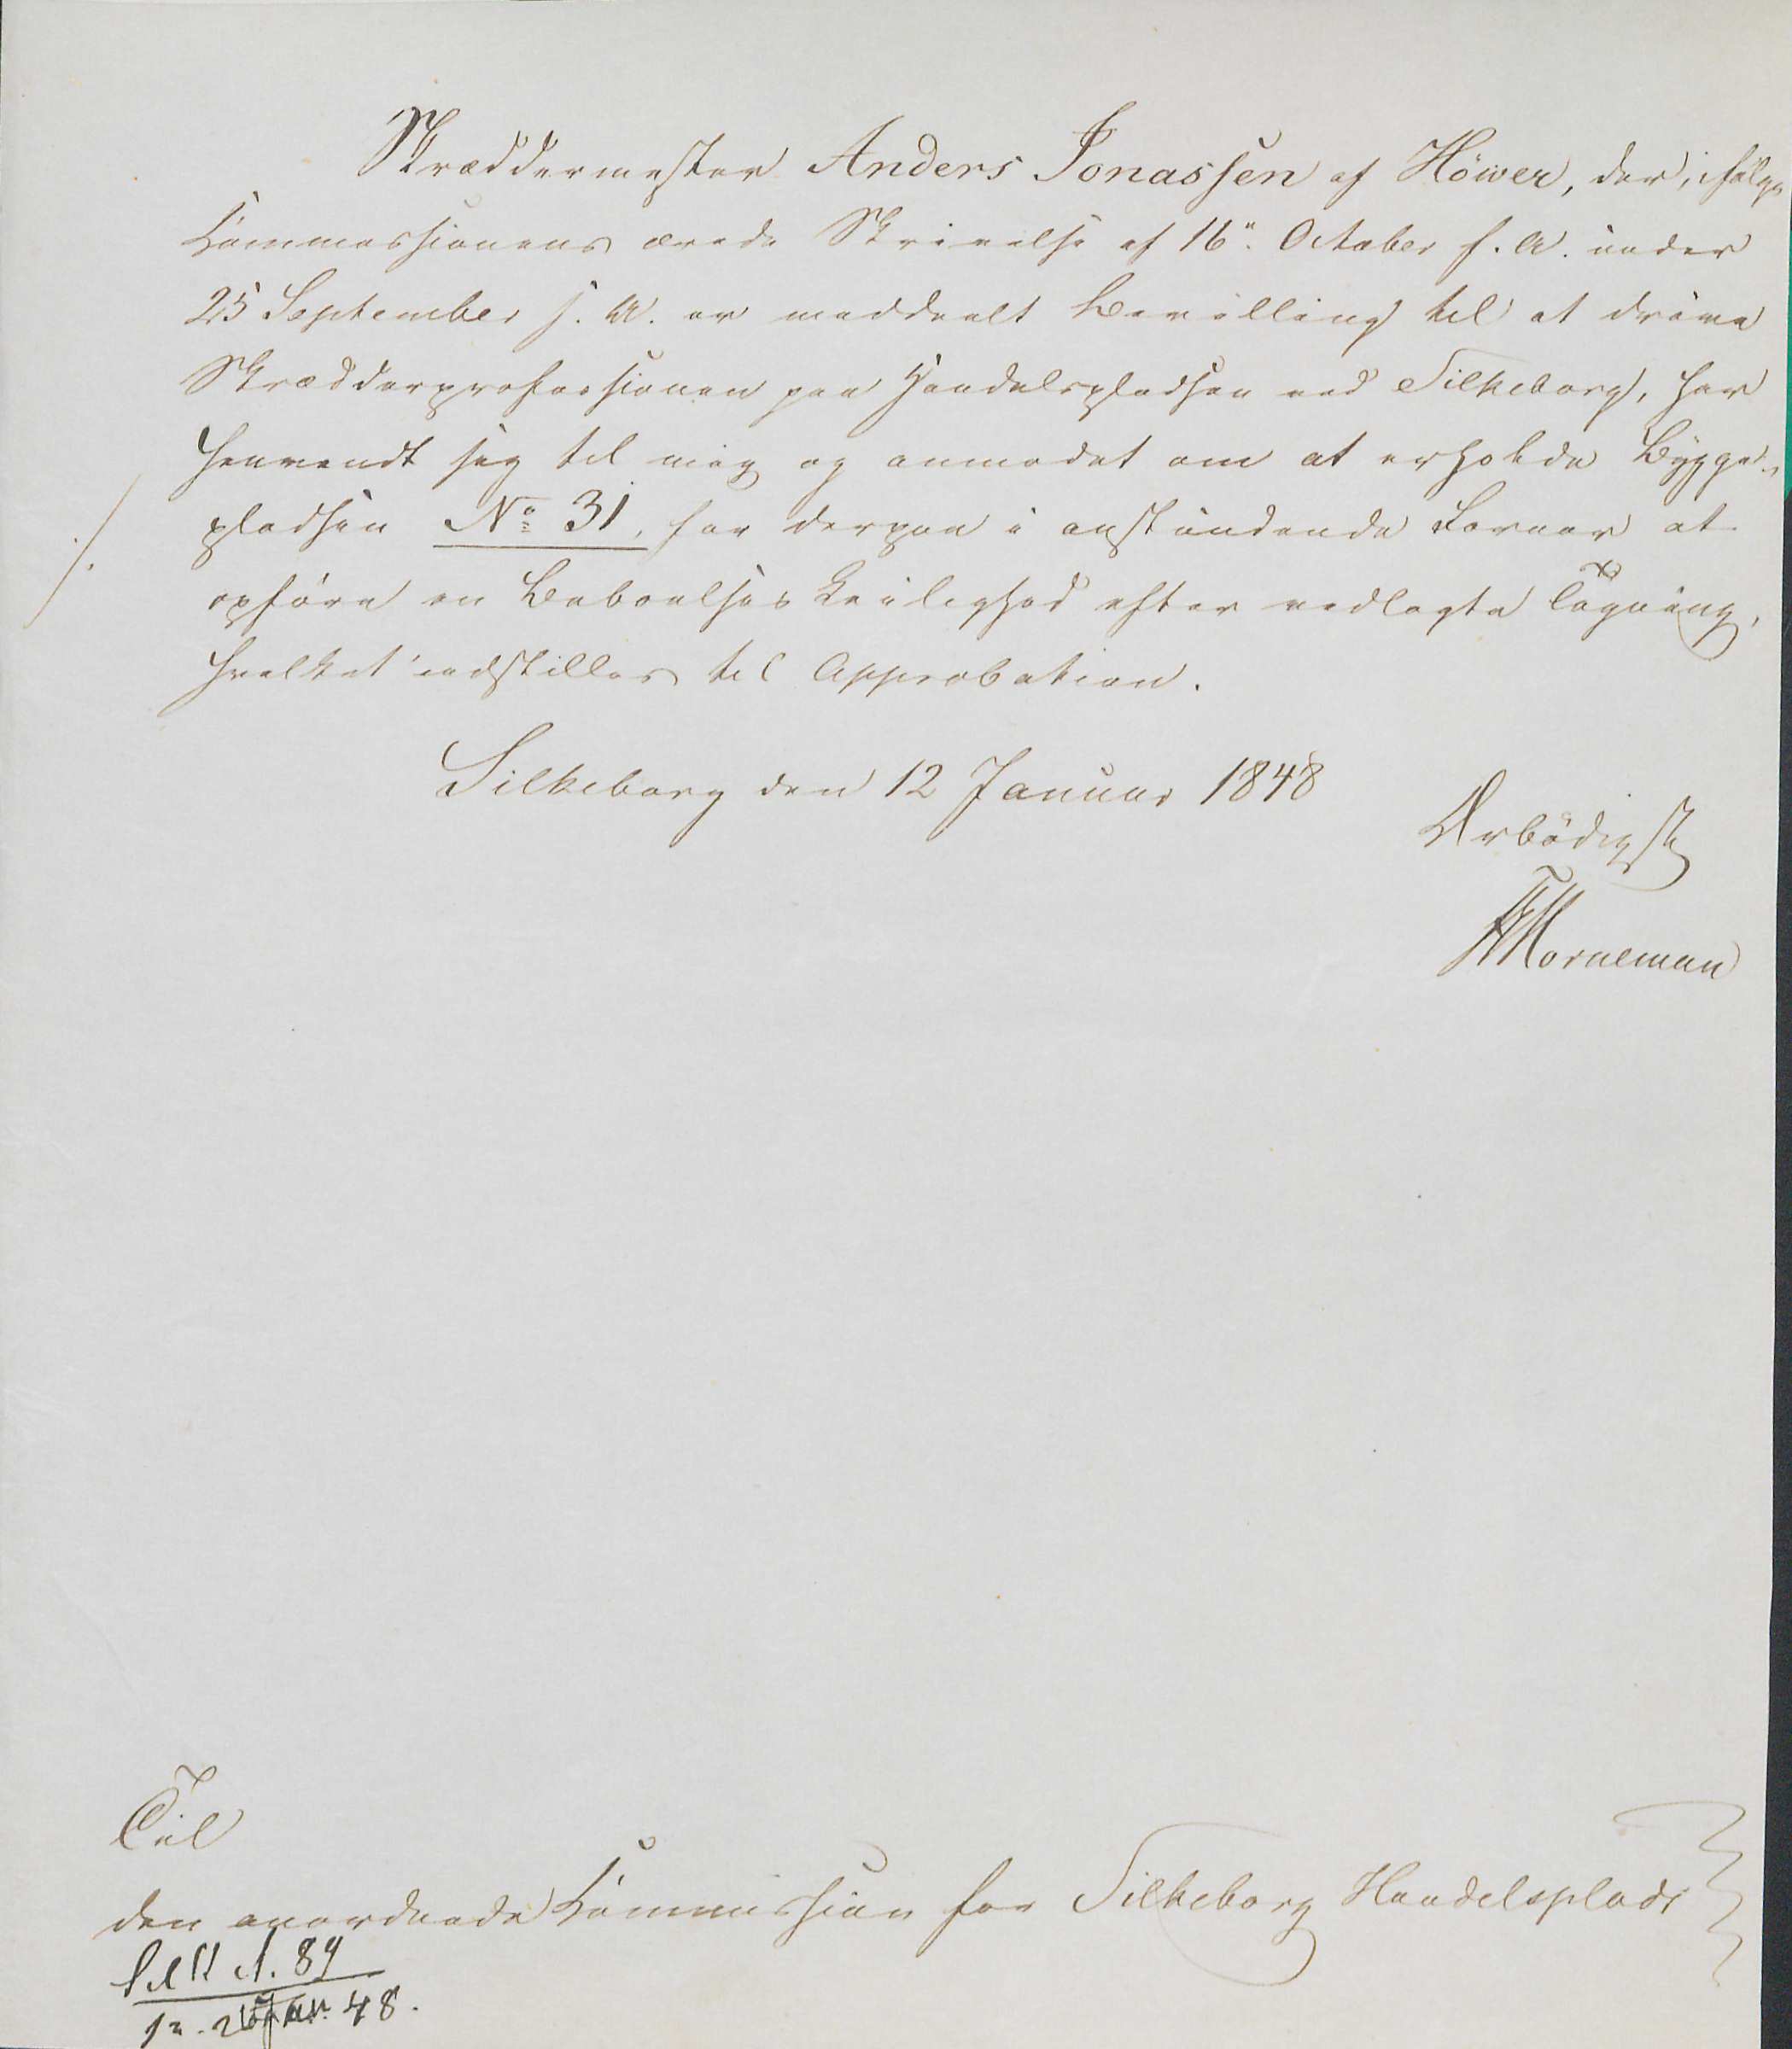 Skræddermester Anders Jonassen af Höver, der, ifölge
Kommissionens ærede Skrivelse af 16". October f. A. under
25 September s. A. er meddeelt Bevilling til at drive
Skrædderprofessionen paa Handelspladsen ved Silkeborg, har
henvendt sig til mig og anmodet om at erholde Bygge-
./. pladsen No 31, for derpaa i anstundende Foraar at
opföre en Beboelses Leilighed efter vedlagte Tegning,
hvilket indstilles til Approbation.
Silkeborg den 12 Januar 1848
Ærbödigst
Horneman
Til
den anordnede Kommission for Silkeborg Handelsplads
89
Jan. 48.